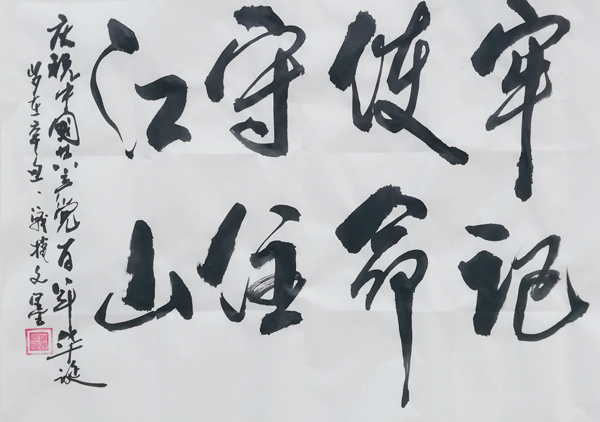 牢记
使命
守住
江山
庆祝中国共产党百年华诞
岁在辛丑、战捷文墨